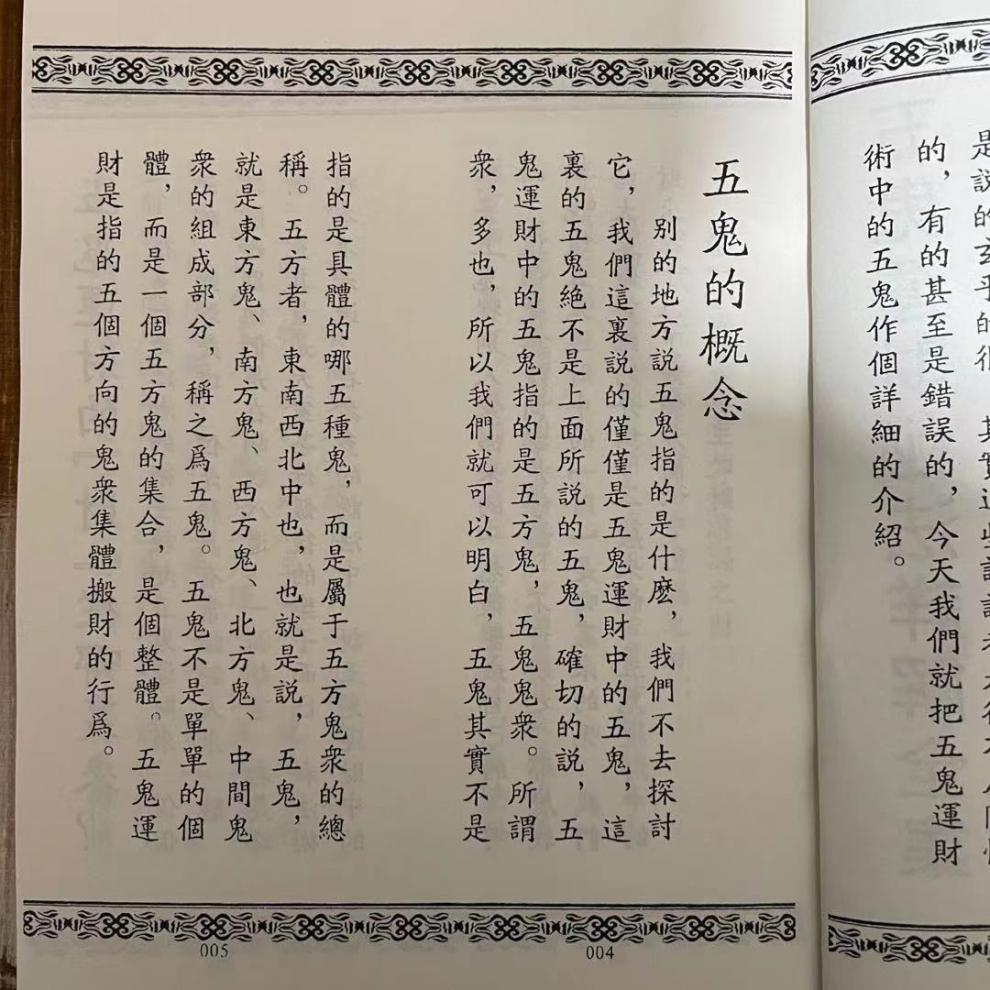 術中的五鬼作個詳細的介紹。
的，有的甚至是錯誤的，今天我們就把五鬼運財
五鬼的概念
别的地方説五鬼指的是什麽，我們不去探討
它，我們這裏説的僅僅是五鬼運財中的五鬼，這
裏的五鬼絶不是上面所説的五鬼，確切的説，五
鬼運財中的五鬼指的是五方鬼，五鬼鬼衆。所謂
衆，多也，所以我們就可以明白，五鬼其實不是
004
指的是具體的哪五種鬼，而是屬于五方鬼衆的總
稱。五方者，東南西北中也，也就是説，五鬼，
就是東方鬼、南方鬼、西方鬼、北方鬼、中間鬼
衆的組成部分，稱之爲五鬼。五鬼不是單單的個
體，而是一個五方鬼的集合，是個整體。五鬼運
財是指的五個方向的鬼衆集體搬財的行爲。
005